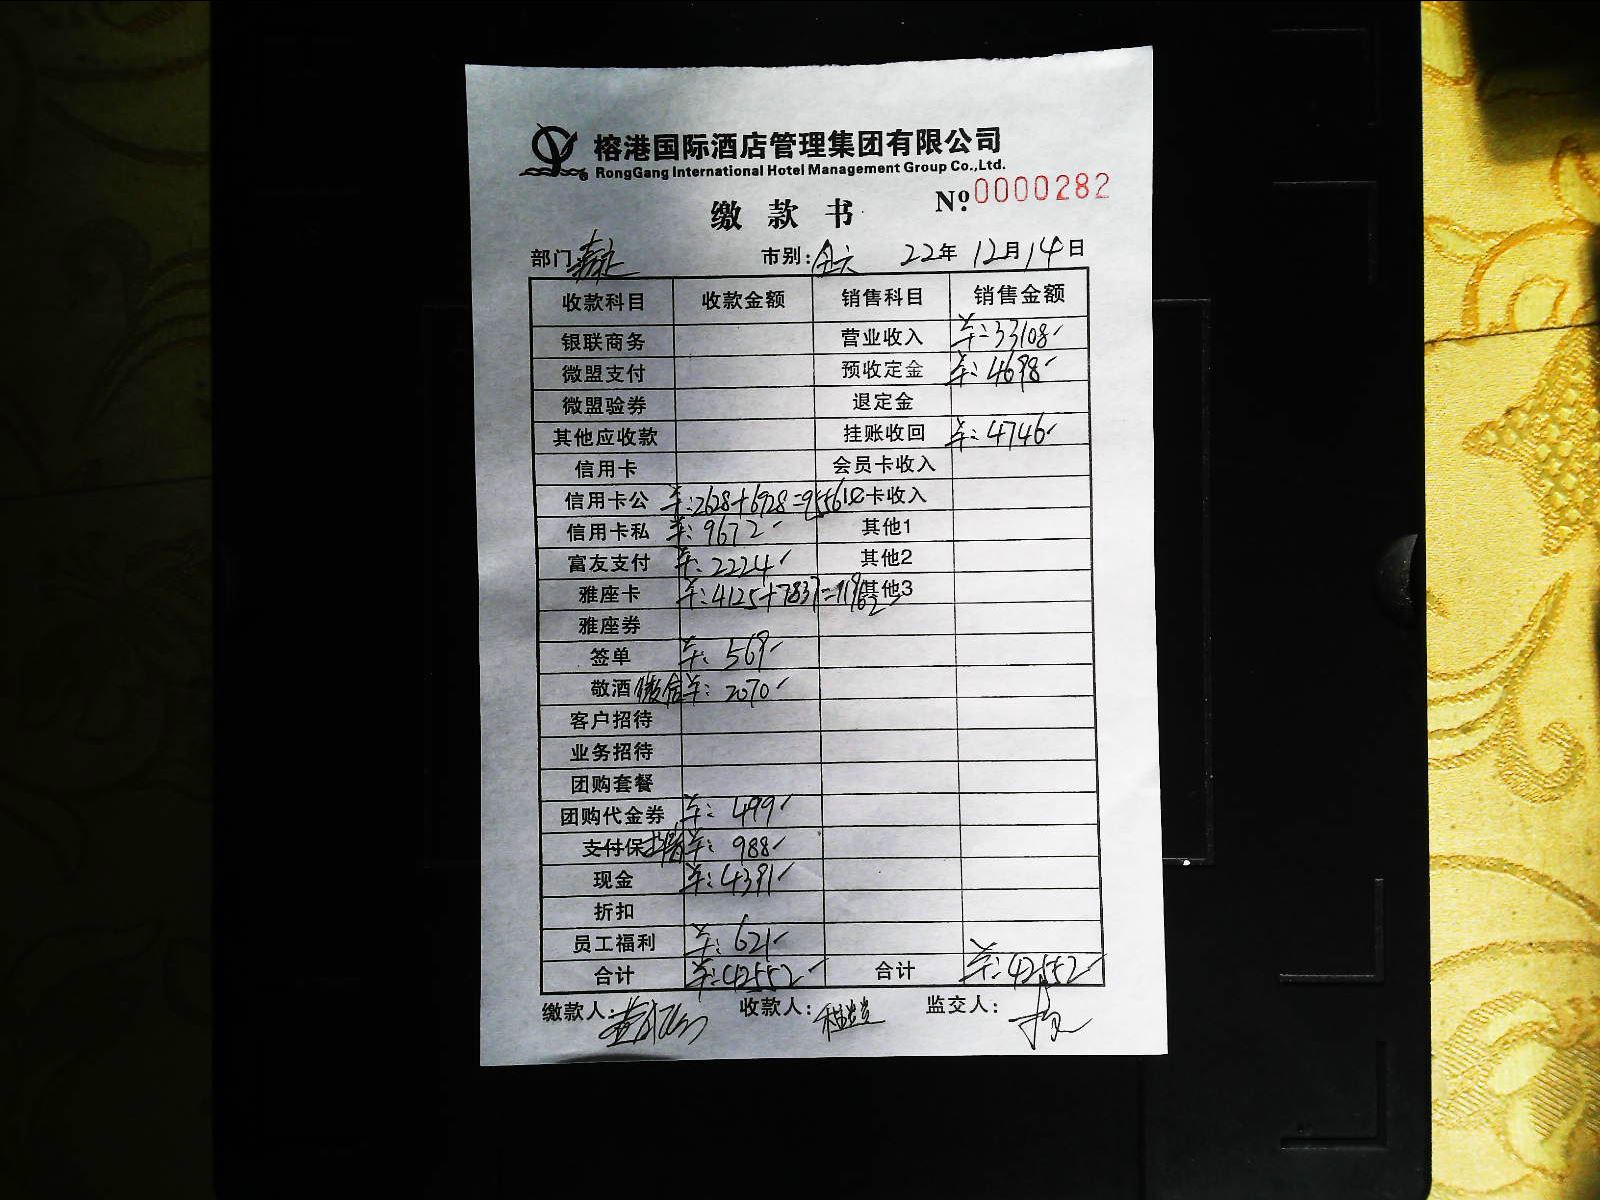 榕港国际酒店管理集团有限公司
RongGang International Hotel Management Group Co.,Ltd.
缴款书 №.0000282
部门 市别: 22年 12月 14日
收款科目 收款金额 销售科目 销售金额
银联商务 营业收入 羊:33108
微盟支付 预收定金 羊:4698
微盟验券 退定金
其他应收款 挂账收回 羊:4746
信用卡 会员卡收入
信用卡公 羊:2628+6928=9556 IC卡收入
信用卡私 羊:9672 其他1
富友支付 羊:2224 其他2
雅座卡 羊:4125+7837=11962 其他3
雅座券
签单 羊:569
敬酒 微信 羊:2070
客户招待
业务招待
团购套餐
团购代金券 羊:499
支付保 羊:988
现金 羊:4391
折扣
员工福利 羊:621
合计 羊:42552 合计 羊:42552
缴款人: 收款人: 监交人: